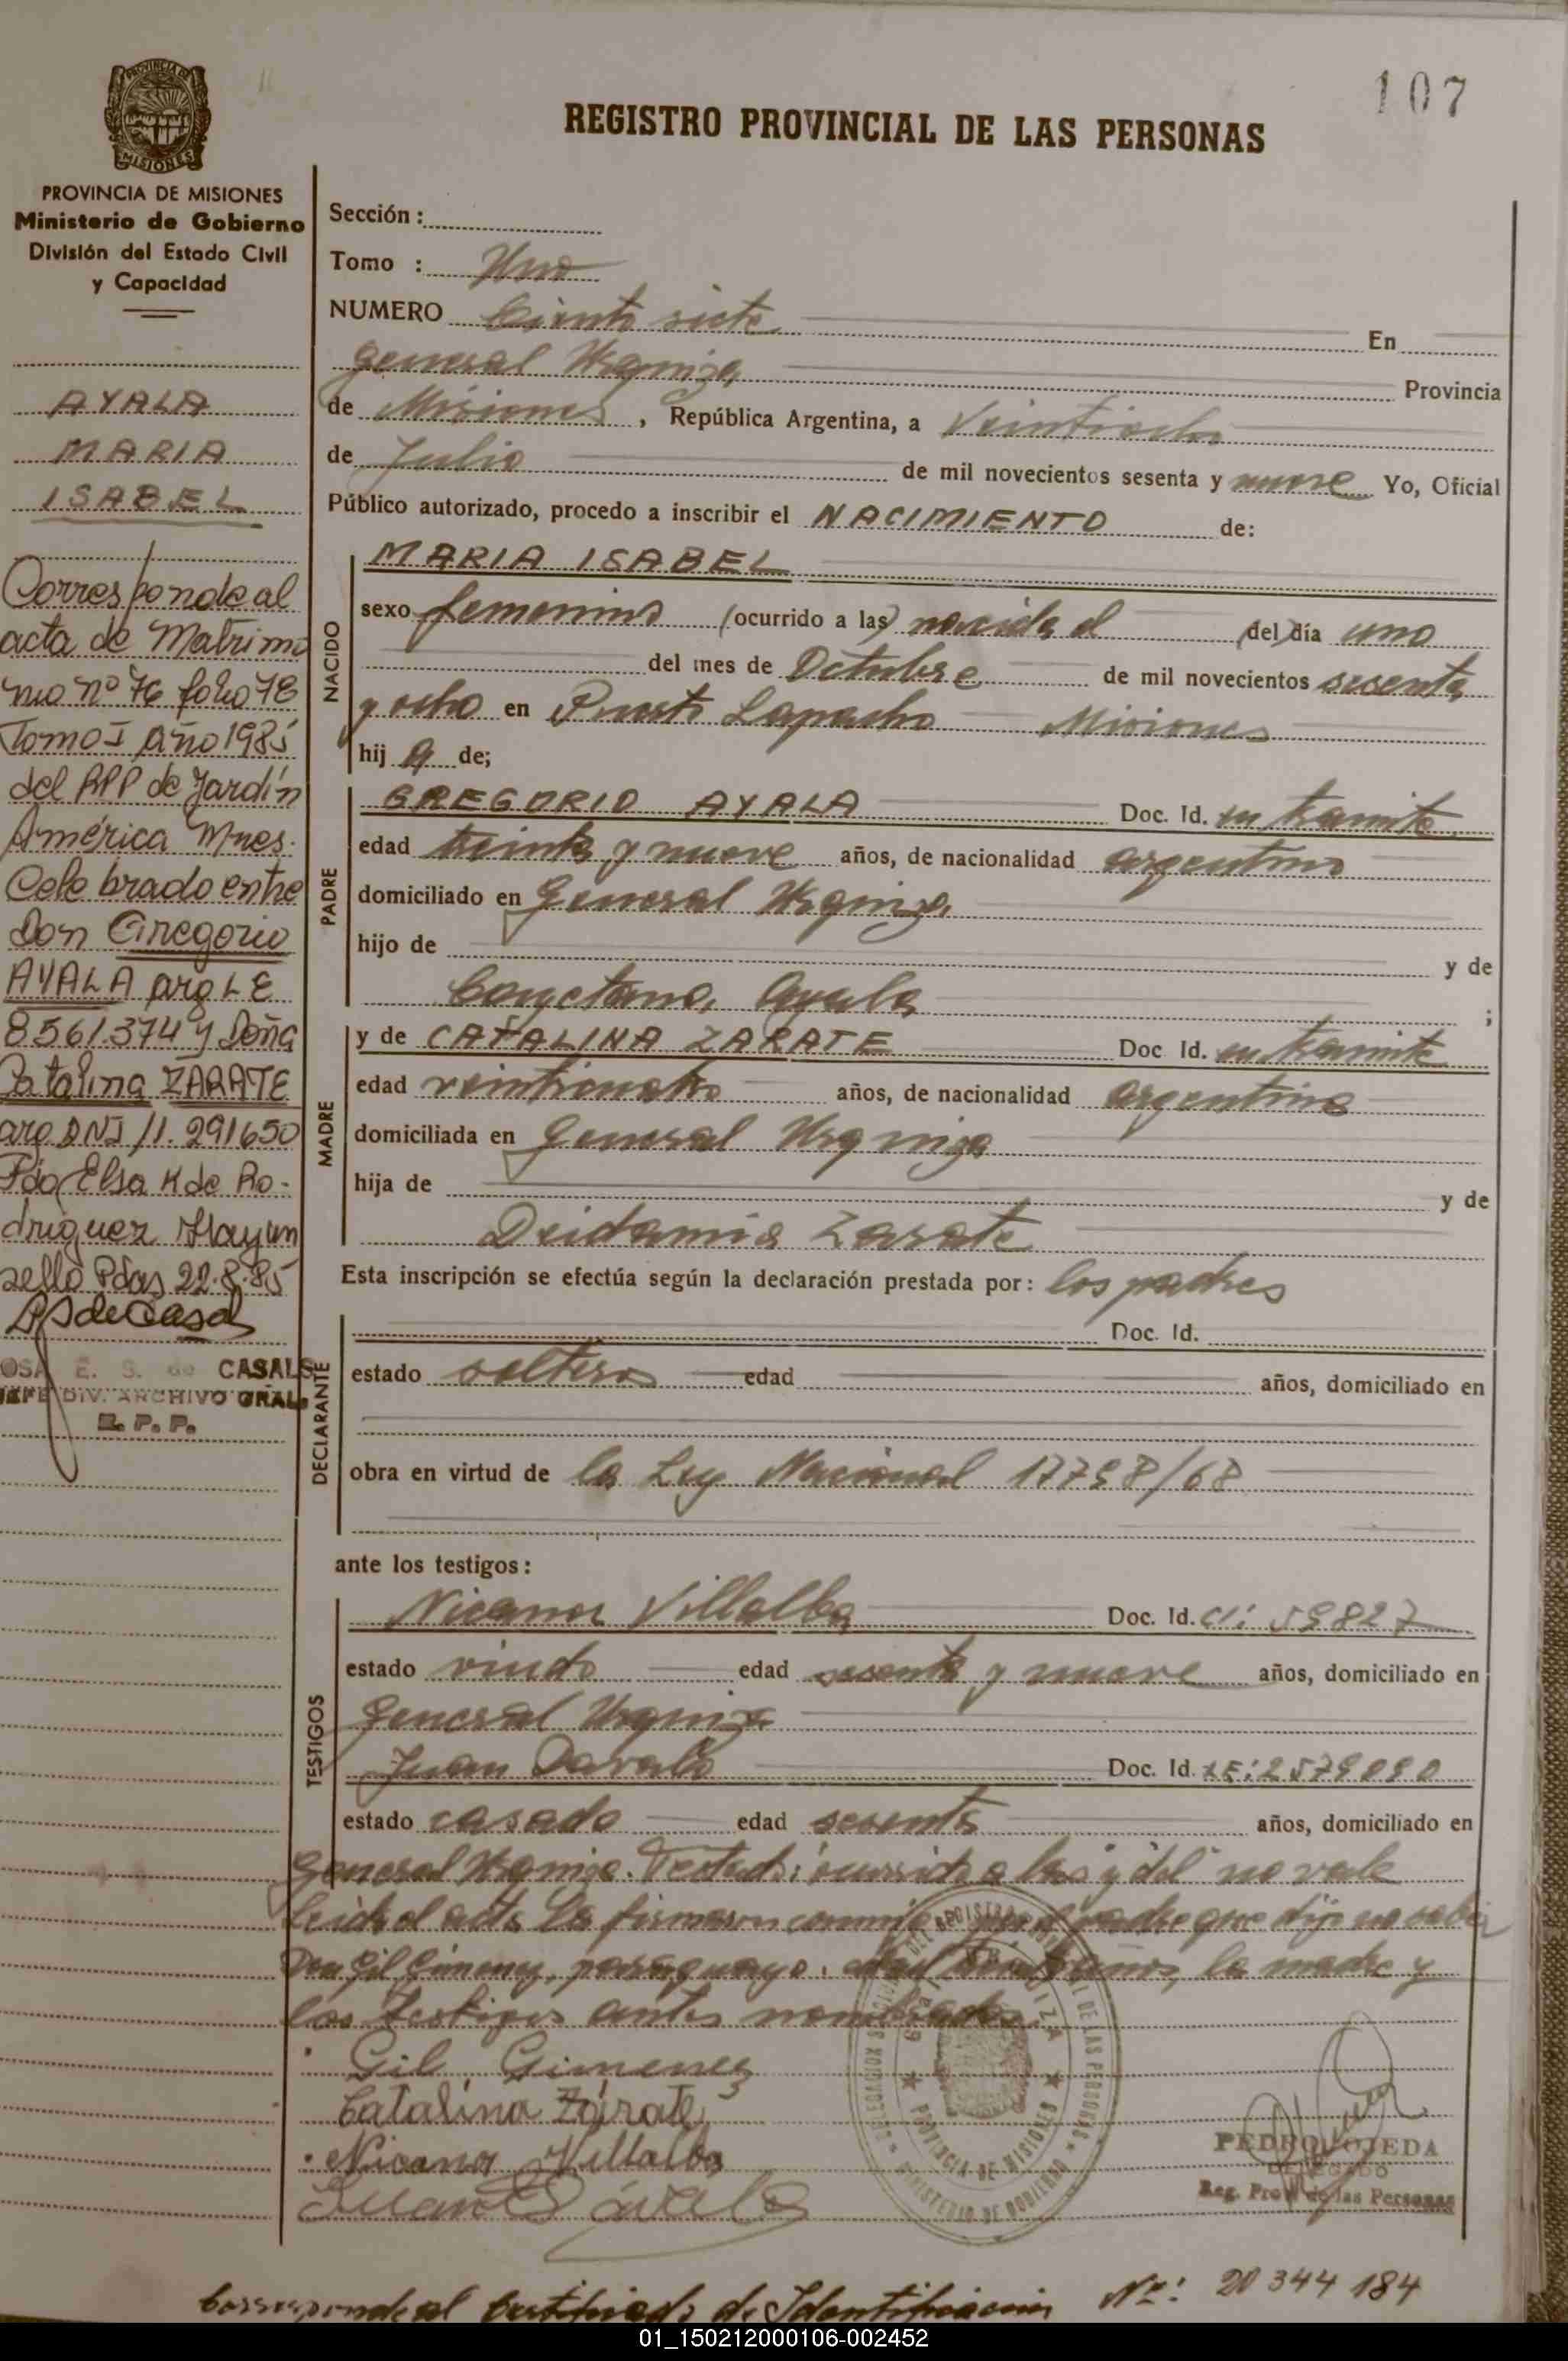 107
REGISTRO PROVINCIAL DE LAS PERSONAS
PROVINCIA DE MISIONES
Ministerio de Gobierno
División del Estado Civil
y Capacidad
AYALA
MARIA
ISABEL
Corresponde al
acta de Matrimo
nio nº 76 folio 78
Tomo I año 1985
del RPP de Jardín
América Mnes.
Celebrado entre
Don Gregorio
AYALA arg LE
8561374 y Doña
Catalina ZARATE
arg DNI 11.291650
Fdo Elsa K de Ro-
driguez Hay un
sello Pdas 22.8.85
E. S. de CASALS
JEFE DIV. ARCHIVO GRAL.
R. P. P.
Sección :
Tomo : Uno
NUMERO Ciento siete En
General Urquiza Provincia
de Misiones, República Argentina, a Veintiocho
de Julio de mil novecientos sesenta y nueve Yo, Oficial
Público autorizado, procedo a inscribir el NACIMIENTO de:
NACIDO
MARIA ISABEL
sexo femenino (ocurrido a las) nacida el (del) día uno
del mes de Octubre de mil novecientos sesenta
y ocho en Puerto Lapacho Misiones
hij a de;
PADRE
GREGORIO AYALA Doc. Id. en tramite
edad treinta y nueve años, de nacionalidad argentino
domiciliado en General Urquiza
hijo de y de
Cayetana Ayala ;
MADRE
y de CATALINA ZARATE Doc Id. en tramite
edad veinticuatro años, de nacionalidad argentina
domiciliada en General Urquiza
hija de y de
Deidamia Zarate
Esta inscripción se efectúa según la declaración prestada por: los padres
DECLARANTE
Doc. Id.
estado solteros edad años, domiciliado en
obra en virtud de la Ley Nacional 17798/68
ante los testigos:
TESTIGOS
Nicanor Villalba Doc. Id. CI: 59827
estado viudo edad sesenta y nueve años, domiciliado en
General Urquiza
Juan Davalo Doc. Id. LE: 2579090
estado casado edad sesenta años, domiciliado en
General Urquiza. Testado: ocurrido a las y del no vale
Leida el acta la firmaron conmigo por el padre que dijo no saber
Don Gil Gimenez, paraguayo, edad años, la madre y
los testigos antes nombrados.
Gil Gimenez
Catalina Zárate
Nicanor Villalba
PROVINCIA DE MISIONES
MINISTERIO DE GOBIERNO
PEDRO OJEDA
DELEGADO
Reg. Prov. de las Personas
Corresponde al Certificado de Identificación Nº: 20 344 184
01_150212000106-002452